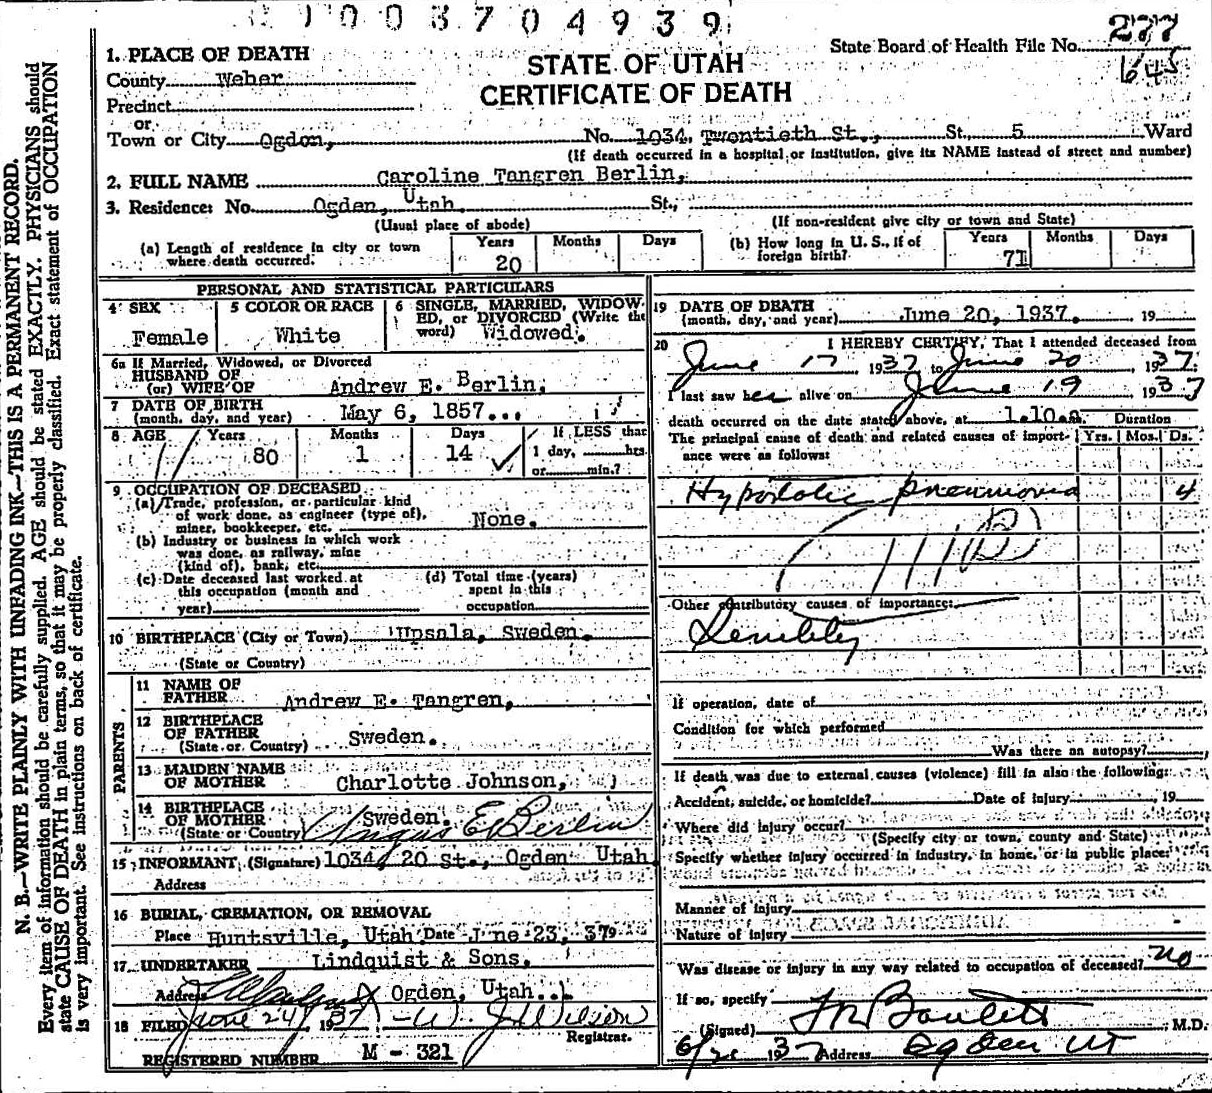 1003704939
State Board of Health File No. 277
645
STATE OF UTAH
CERTIFICATE OF DEATH
1. PLACE OF DEATH
County Weber
Precinct
or
Town or City Ogden, No. 1034, Twentieth St., St., 5 Ward
(If death occurred in a hospital or institution, give its NAME instead of street and number)
2. FULL NAME Caroline Tangren Berlin,
3. Residence: No. Ogden, Utah. St.,
(Usual place of abode) (If non-resident give city or town and State)
(a) Length of residence in city or town where death occurred. Years 20 Months Days
(b) How long in U. S., if of foreign birth? Years 71 Months Days
PERSONAL AND STATISTICAL PARTICULARS
4 SEX Female
5 COLOR OR RACE White
6 SINGLE, MARRIED, WIDOWED, or DIVORCED (Write the word) Widowed.
6a If Married, Widowed, or Divorced
HUSBAND OF
(or) WIFE OF Andrew E. Berlin,
7 DATE OF BIRTH
(month, day, and year) May 6, 1857...
8 AGE Years 80 Months 1 Days 14 If LESS than 1 day, hrs. or min.?
9 OCCUPATION OF DECEASED
(a) Trade, profession, or particular kind of work done, as engineer (type of), miner, bookkeeper, etc. None.
(b) Industry or business in which work was done, as railway, mine (kind of), bank, etc.
(c) Date deceased last worked at this occupation (month and year)
(d) Total time (years) spent in this occupation
10 BIRTHPLACE (City or Town) Upsala, Sweden.
(State or Country)
PARENTS
11 NAME OF FATHER Andrew E. Tangren,
12 BIRTHPLACE OF FATHER (State or Country) Sweden.
13 MAIDEN NAME OF MOTHER Charlotte Johnson,
14 BIRTHPLACE OF MOTHER (State or Country) Sweden.
Angus E Berlin
15 INFORMANT (Signature) 1034 20 St., Ogden Utah
Address
16 BURIAL, CREMATION, OR REMOVAL
Place Huntsville, Utah Date June 23, 37
17 UNDERTAKER Lindquist & Sons,
Address Ogden, Utah..
18 FILED June 24 1937 W. J. Wilson
Registrar.
REGISTERED NUMBER M - 321
19 DATE OF DEATH
(month, day, and year) June 20, 1937. 19
20 I HEREBY CERTIFY, That I attended deceased from
June 17 1937 to June 20 1937.
I last saw her alive on June 19 1937
death occurred on the date stated above, at 1.10.a Duration
The principal cause of death and related causes of importance were as follows: Yrs. Mos. Ds.
Hypostatic pneumonia 4
Other contributory causes of importance:
Senility
If operation, date of
Condition for which performed
Was there an autopsy?
If death was due to external causes (violence) fill in also the following:
Accident, suicide, or homicide? Date of injury 19
Where did injury occur?
(Specify city or town, county and State)
Specify whether injury occurred in industry, in home, or in public place:
Manner of injury
Nature of injury
Was disease or injury in any way related to occupation of deceased? no
If so, specify
(Signed) M.D.
1937 Address Ogden UT
N. B.—WRITE PLAINLY WITH UNFADING INK—THIS IS A PERMANENT RECORD.
Every item of information should be carefully supplied. AGE should be stated EXACTLY. PHYSICIANS should
state CAUSE OF DEATH in plain terms, so that it may be properly classified. Exact statement of OCCUPATION
is very important. See instructions on back of certificate.